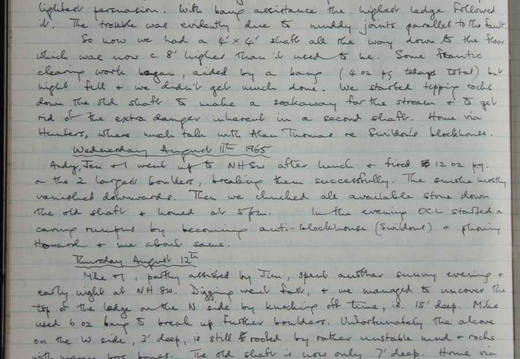 lightest persuasion. With bang assistance the highest ledge followed
it. The trouble was evidently due to muddy joints parallel to the fault.
So now we had a 4' x 4' shaft all the way down to the floor
which was now c. 8' higher than it used to be. Some frantic
clearing work began, aided by a bang (4 oz pg total) but
night fell & we didn't get much done. We started tipping rocks
down the old shaft to make a soakaway for the stream & to get
rid of the extra danger inherent in a second shaft. Home via
Hunters, where much talk with Alan Thomas re Swildons blockhouse.
Wednesday August 11th 1965
Andy, Jen & I went up to NHSW after lunch & fired 12 oz pg.
on the 2 largest boulders, breaking them successfully. The smoke mostly
vanished downwards. Then we chucked all available stone down
the old shaft & homed at 5pm. In the evening OCL started a
caving rumpus by becoming anti-blockhouse (Swildons) & phoning
Howard & me about same.
Thursday August 12th
Mike & I, partly assisted by Jim, spent another sunny evening &
early night at NHSW. Digging went fast, & we managed to uncover the
top of the ledge on the N side by knocking off time, i.e. 15' deep. Mike
used 6 oz bang to break up further boulders. Unfortunately the alcove
on the W side, 3' deep, is still roofed by rather unstable mud & rocks
The old shaft is now only 7' deep. Home via